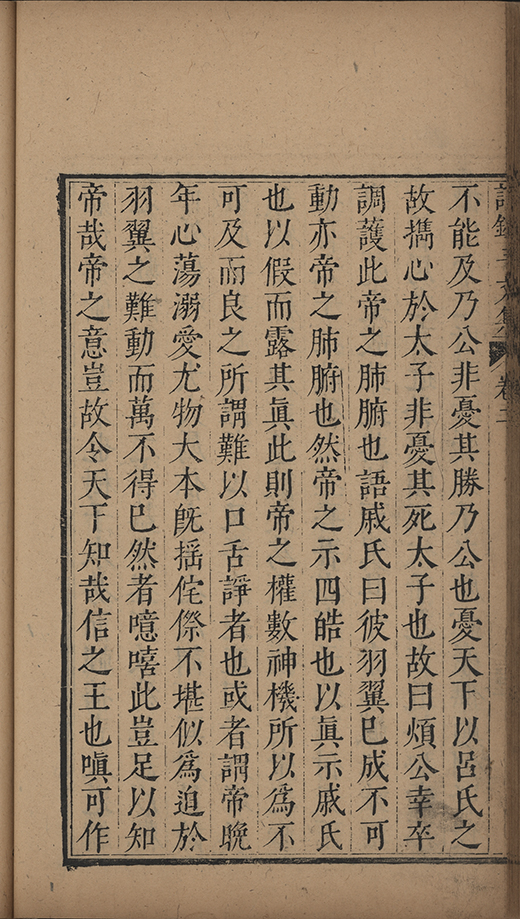 不能及乃公非憂其勝乃公也憂天下以呂氏之
故擕心於太子非憂其死太子也故曰煩公幸卒
調護此帝之肺腑也語戚氏曰彼羽翼巳成不可
動亦帝之肺腑也然帝之示四皓也以眞示戚氏
也以假而露其眞此則帝之權數神機所以爲不
可及而良之所謂難以口舌諍者也或者謂帝晚
年心蕩溺愛尤物大本旣揺侘傺不堪似爲迫於
羽翼之難動而萬不得巳然者噫嘻此豈足以知
帝哉帝之意豈故令天下知哉信之王也嗔可作
卷二